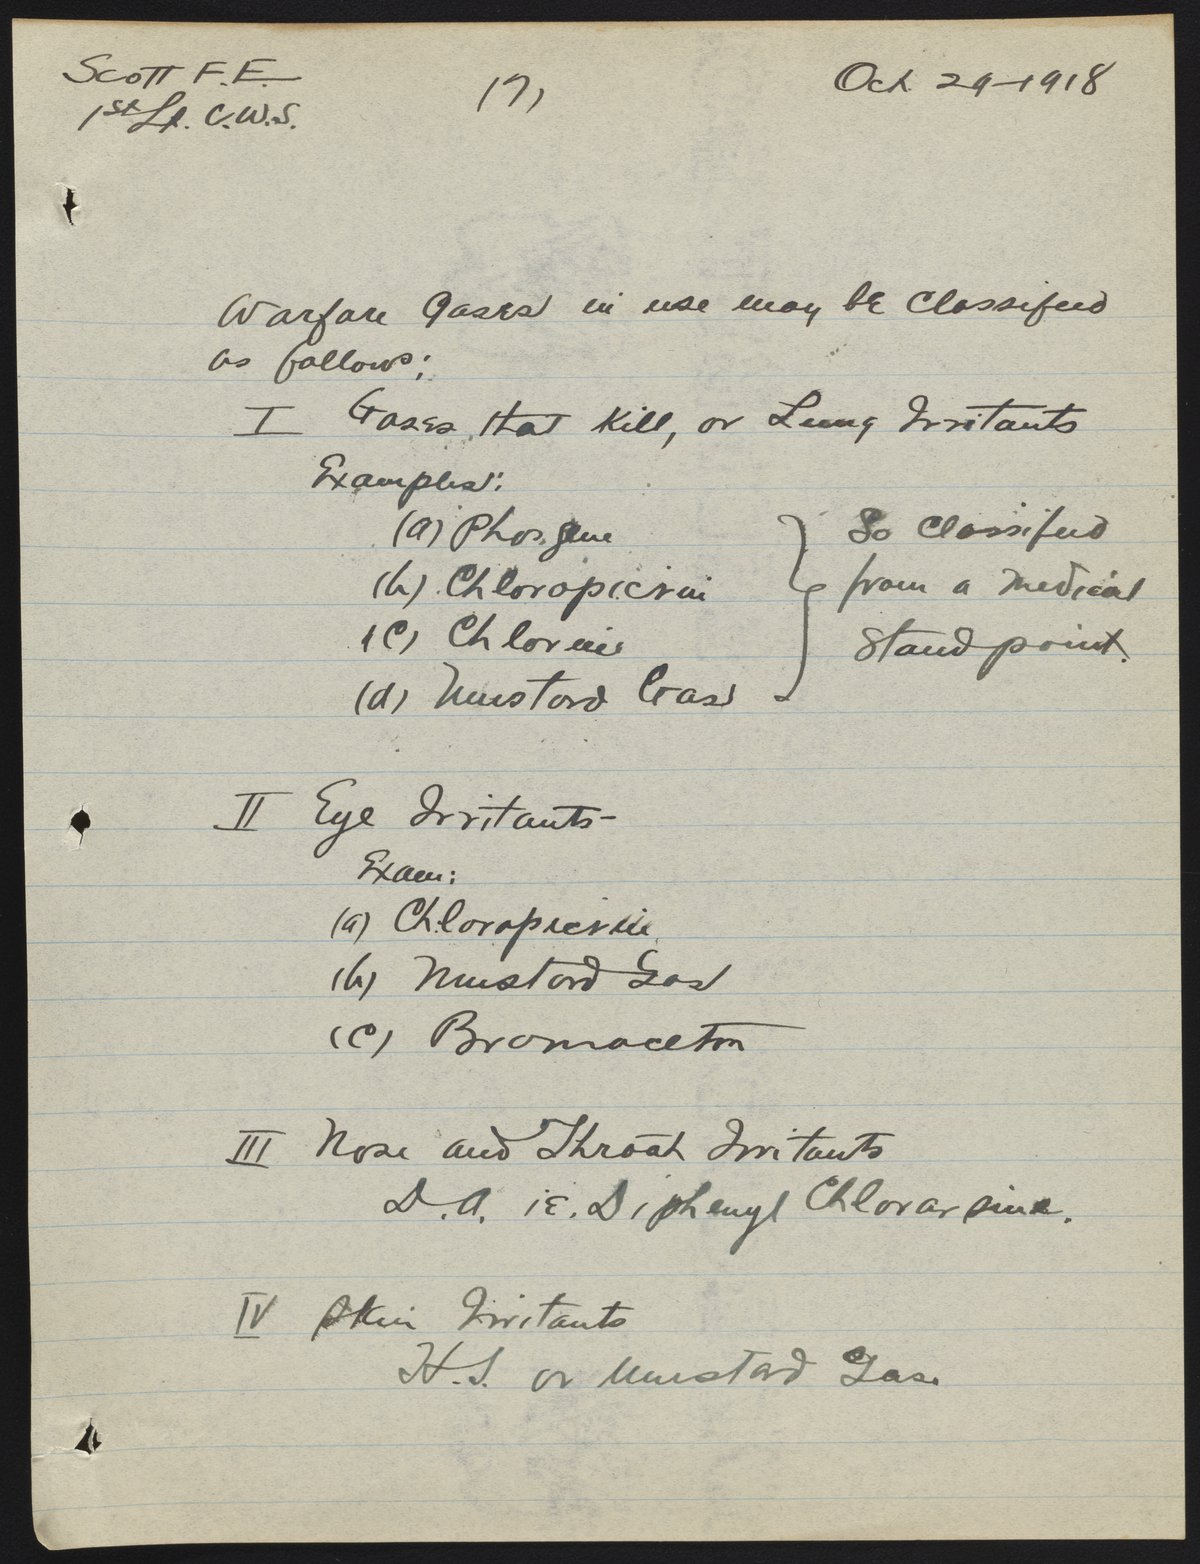 Scott F.E.
1st Lt. C.W.S.
(7)
Oct 29-1918
Warfare Gases in use may be classified
as follows;
I Gases that kill, or Lung Irritants
Examples:
(a) Phosgene
(b) Chloropicrin
(c) Chlorine
(d) Mustard Gas
So classified
from a medical
standpoint.
II Eye Irritants-
Exam:
(a) Chloropicrin
(b) Mustard Gas
(c) Bromaceton
III Nose and Throat Irritants
D.A. ie. Diphenyl Chlorarsine.
IV Skin Irritants
H.S. or Mustard Gas.